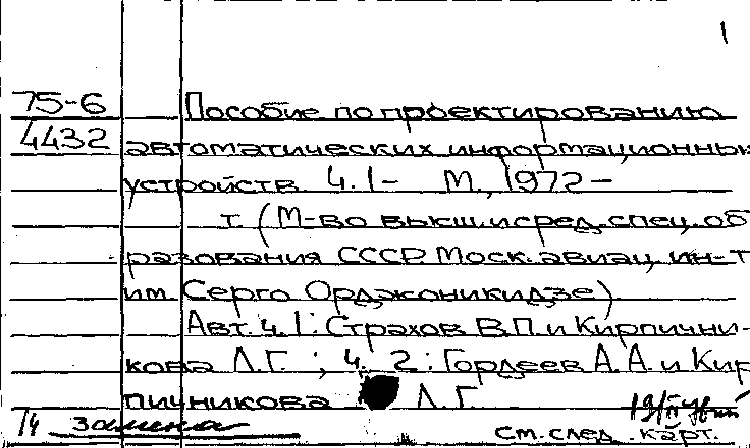 1
75-6 Пособие по проектированию
4432 автоматических информационных
устройств. Ч. 1- М., 1972-
т. (М-во высш. и сред. спец. об
разования СССР. Моск. авиац. ин-т
им. Серго Орджоникидзе).
Авт. ч. 1: Страхов В.П. и Кирпични-
кова Л.Г. ; ч. 2: Гордеев А.А. и Кир
пичникова Л.Г.
т4 замена
см. след. карт.